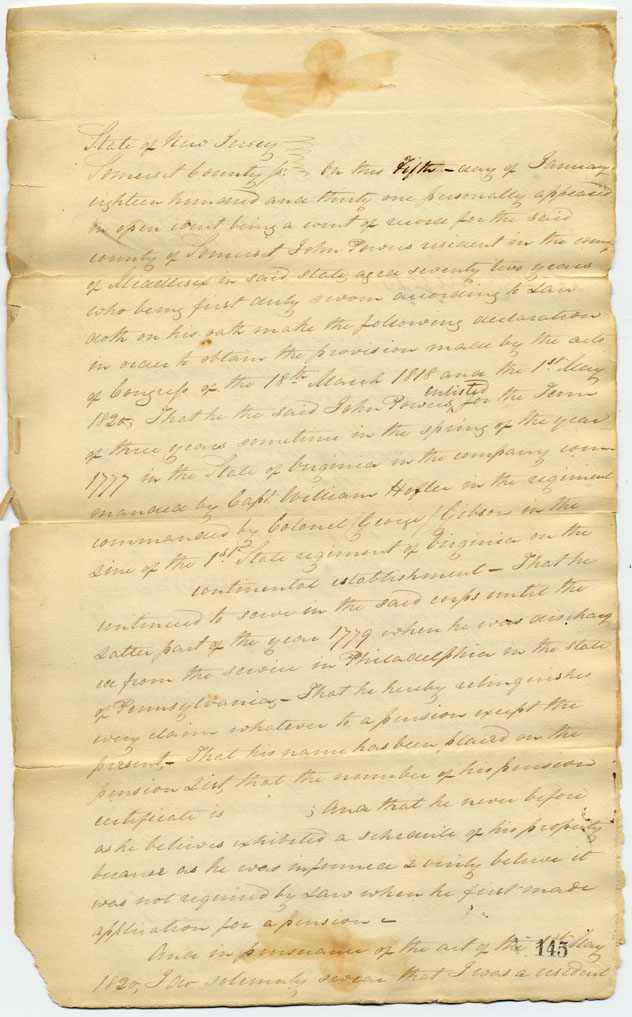 State of New Jersey
Somerset County ss. On this Fifth day of January
eighteen hundred and thirty one personally appeared
in open court being a court of record for the said
county of Somerset John Powers resident in the county
of Middlesex in said state, aged seventy two years
who being first duly sworn according to Law
doth on his oath make the following declaration
in order to obtain the provision made by the acts
of Congress of the 18th March 1818 and the 1st May
1820, That he the said John Powers enlisted for the Term
of three years sometime in the spring of the year
1777 in the State of Virginia in the company com-
manded by Capt. William Hofler in the regiment
commanded by Colonel George Gibson in the
Line of the 1st State regiment of Virginia on the
continental establishment - That he
continued to serve in the said corps until the
Latter part of the year 1779 when he was discharg
ed from the service in Philadelphia in the state
of Pennsylvania, - That he hereby relinquishes
every claim whatever to a pension except the
present - That his name has been placed on the
pension List, that the number of his pension
certificate is ; And that he never before
as he believes exhibited a schedule of his property
because as he was informed & verily believe it
was not required by Law when he first made
application for a pension -
And in pursuance of the act of the 1st May
145
1820, I do solemnly swear that I was a resident